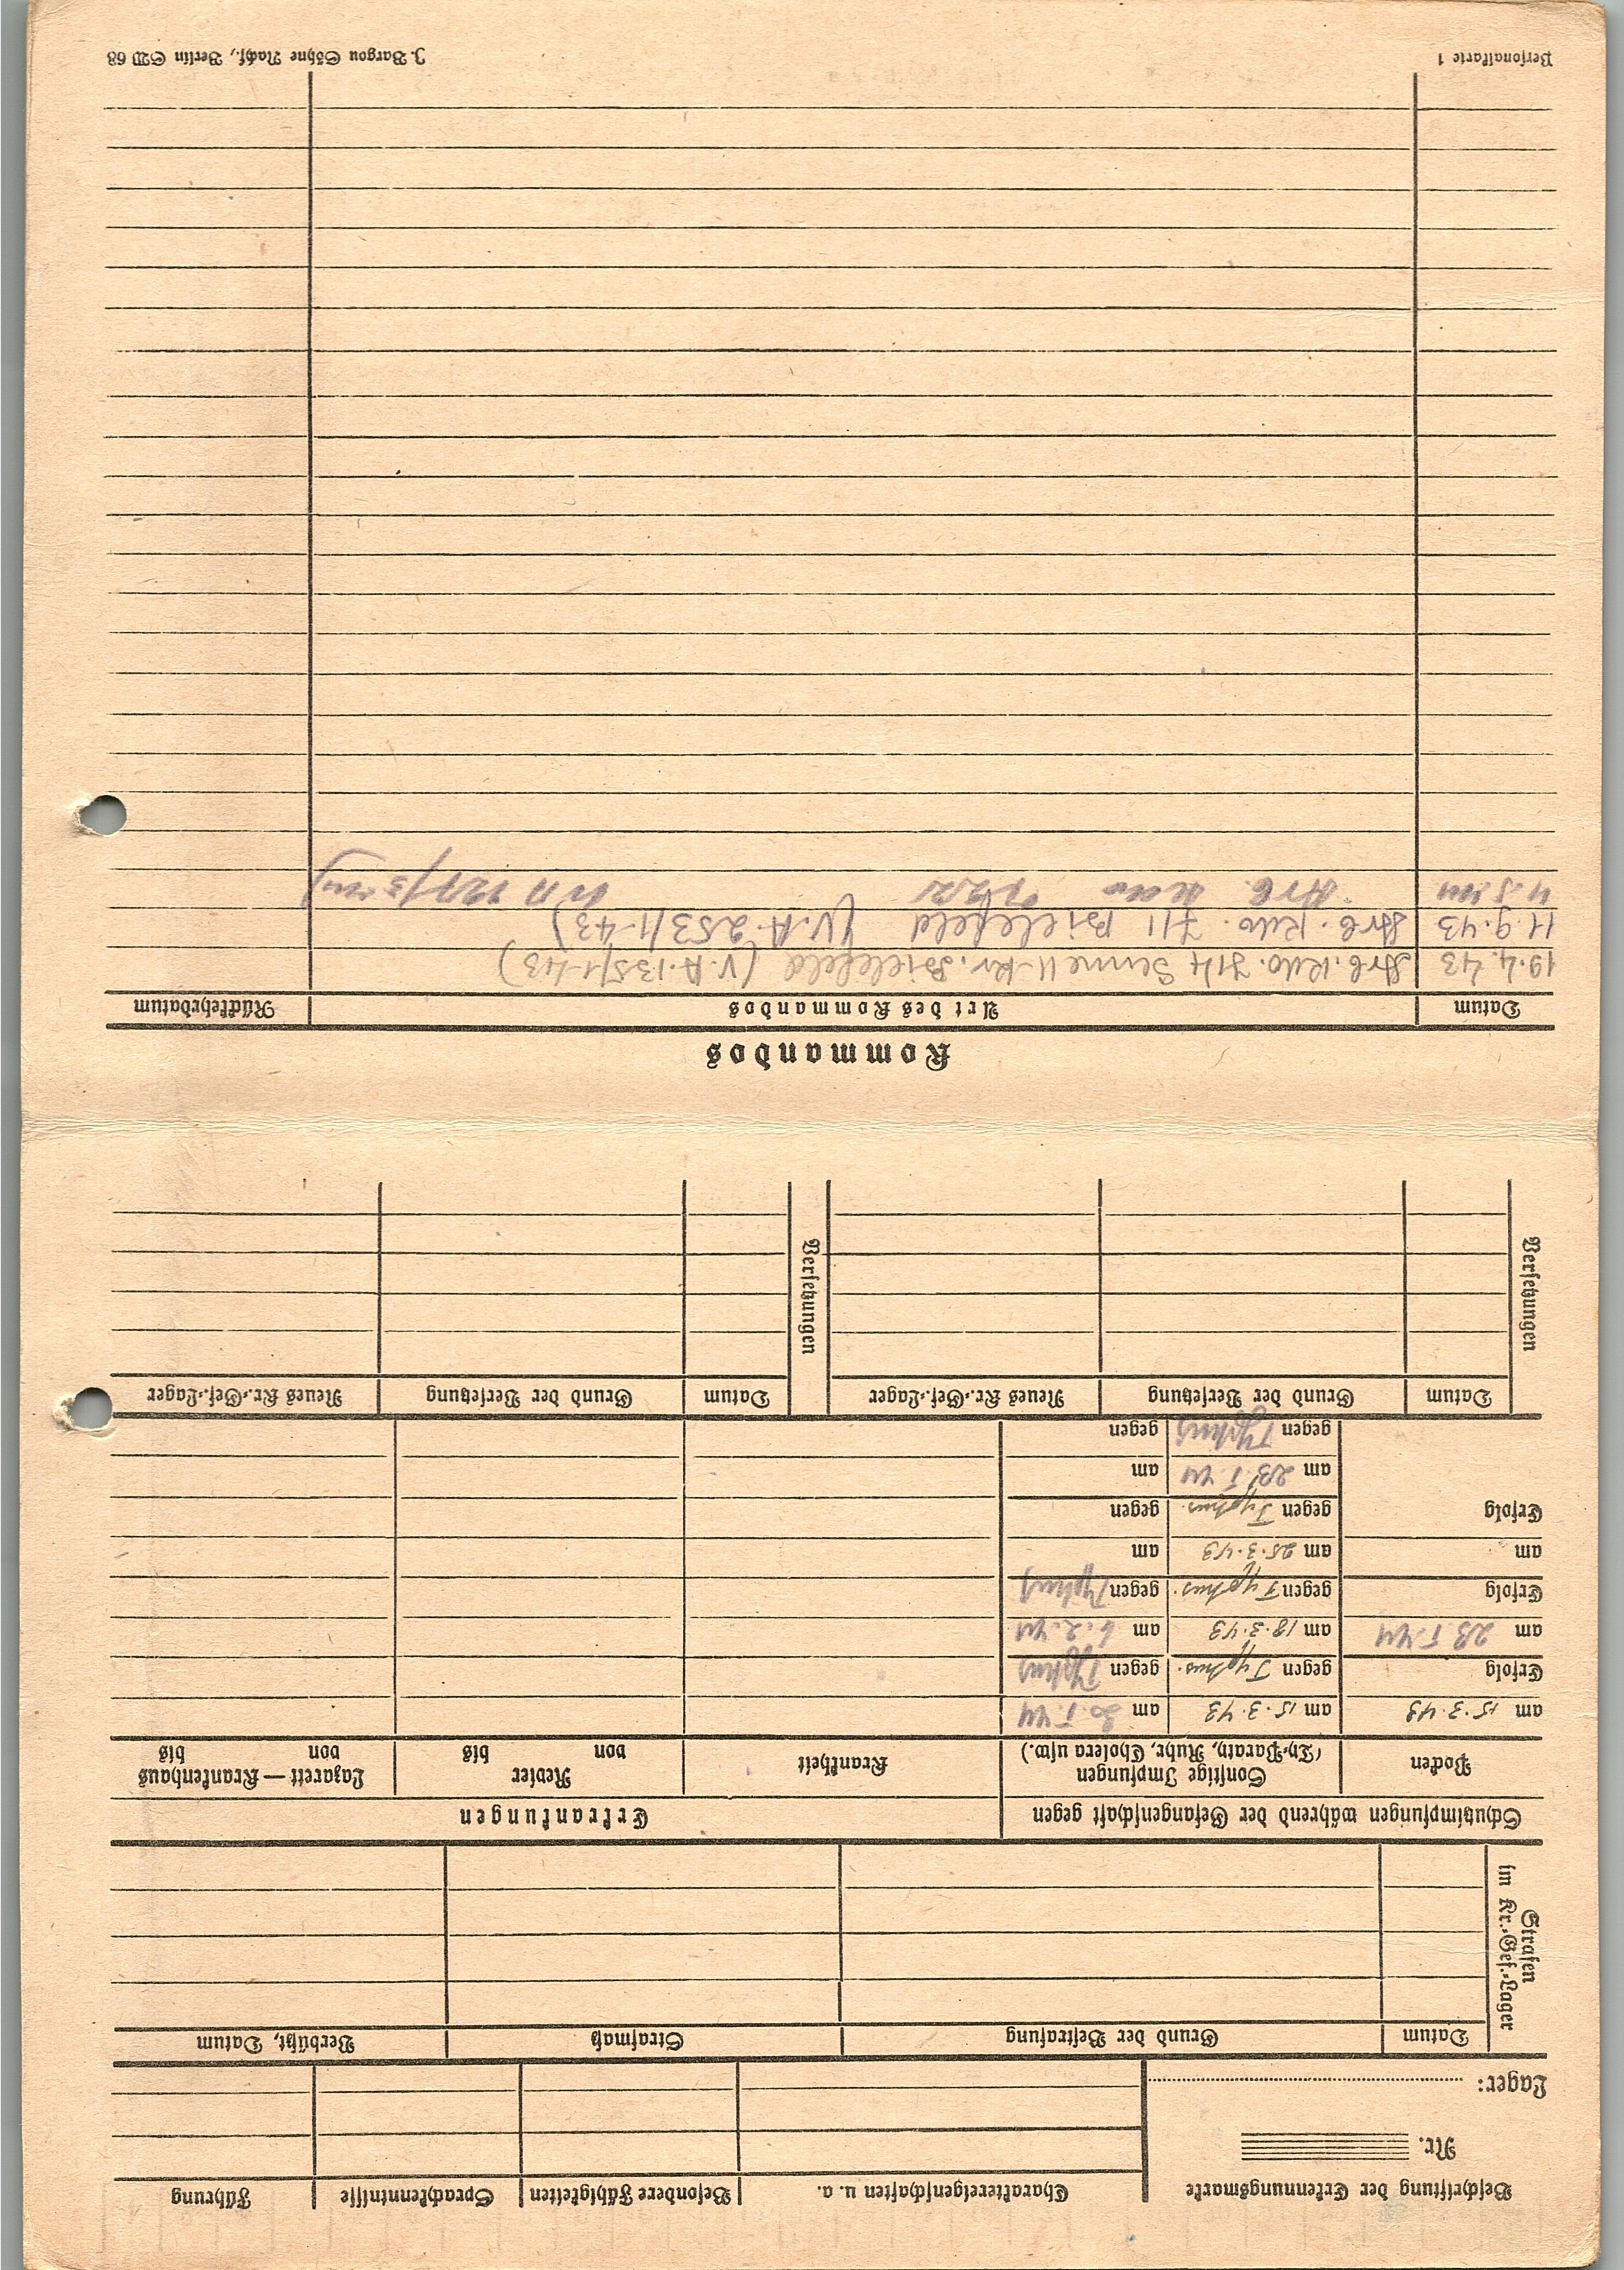 Beschriftung der Erkennungsmarke
Nr.
Lager:
Charaktereigenschaften u. a.
Besondere Fähigkeiten
Sprachkenntnisse
Führung
Strafen
im Kr.-Gef.-Lager
Datum
Grund der Bestrafung
Strafmaß
Verbüßt, Datum
Schutzimpfungen während der Gefangenschaft gegen
Erkrankungen
Pocken
Sonstige Impfungen
(Th-Parath, Ruhr, Cholera usw.)
Krankheit
Revier
von bis
Lazarett — Krankenhaus
von bis
am 15.3.43 am 15.3.43 am
Erfolg gegen Typhus. gegen Typhus
am am 18.3.43 am 6.2.44
Erfolg gegen Typhus. gegen Typhus
am am 25.3.43 am
Erfolg gegen Typhus. gegen
am am
gegen Typhus gegen
Versetzungen
Datum
Grund der Versetzung
Neues Kr.-Gef.-Lager
Versetzungen
Datum
Grund der Versetzung
Neues Kr.-Gef.-Lager
Kommandos
Datum
Art des Kommandos
Rückkehrdatum
19.4.43 Arb.Kdo. 714 Senne II Kr. Bielefeld (V.A.135/1-43)
11.9.43 Arb.Kdo. 711 Bielefeld (V.A.253/1-43)
Arb.
Personalkarte 1
J. Bargou Söhne Nachf., Berlin SW 68